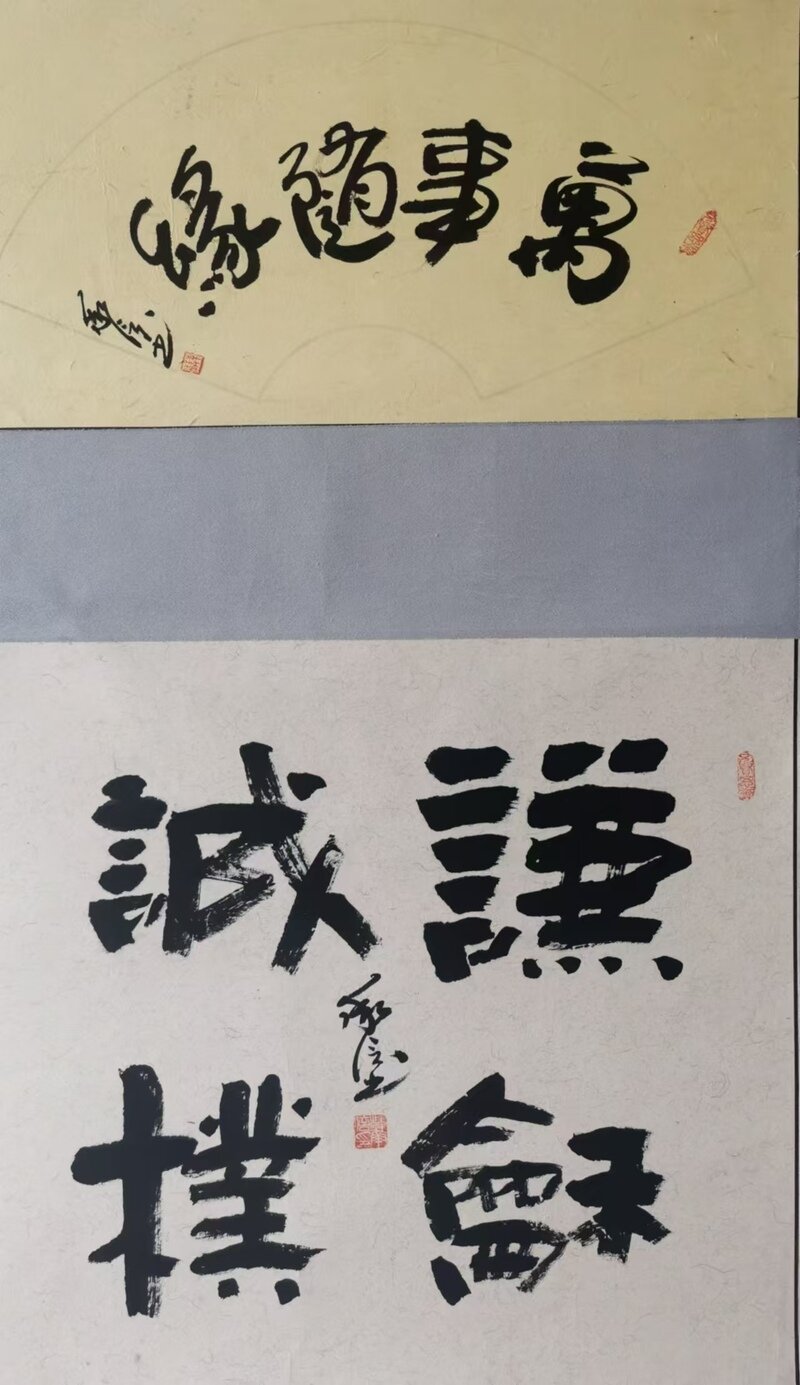 萬事隨緣
謙龢
誠樸